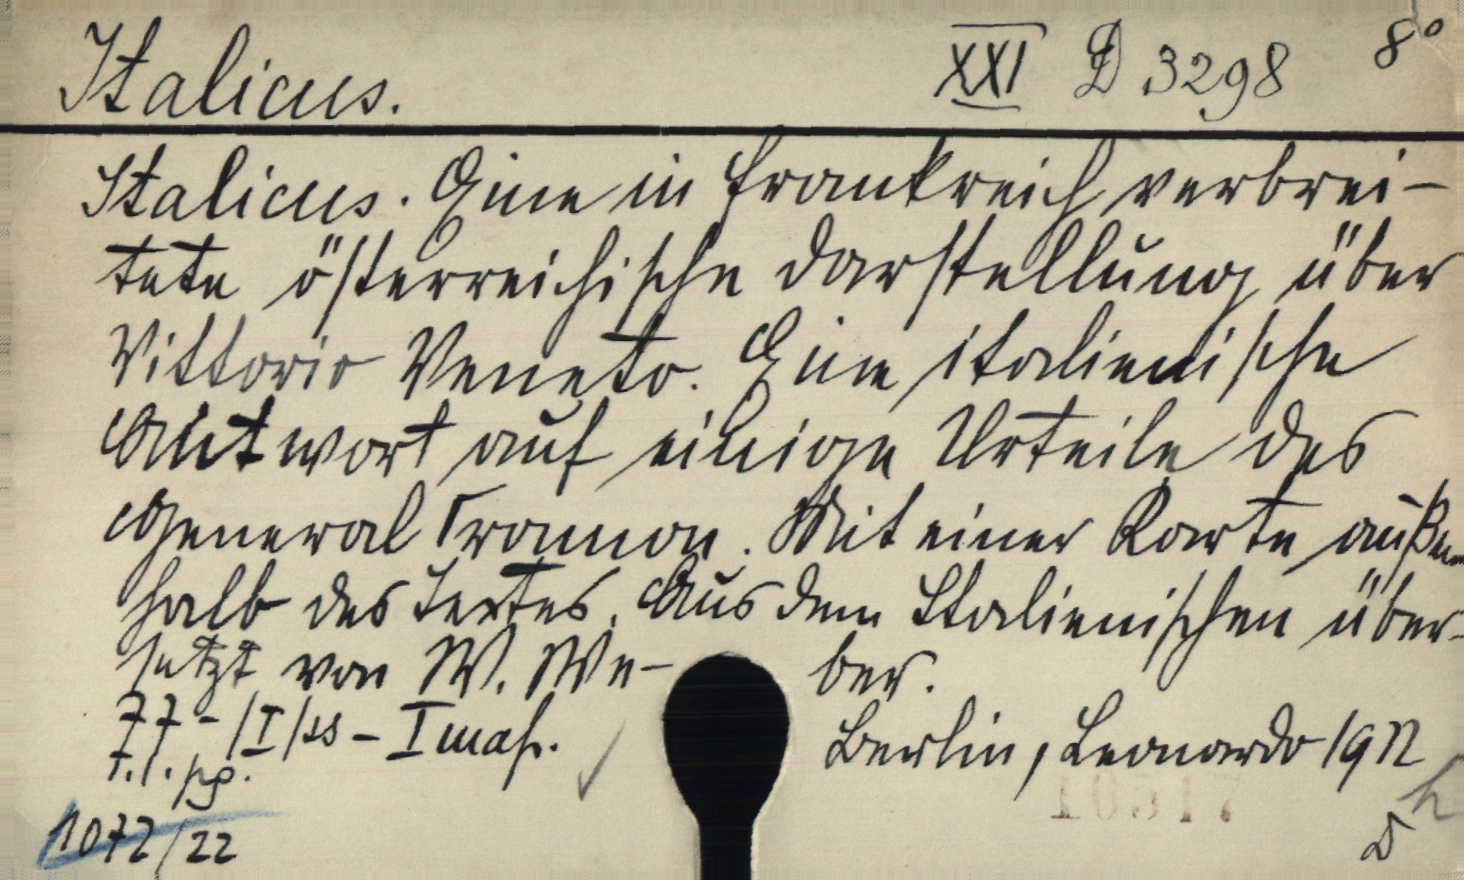 Italicus. XXI D 3298 8°
Italicus. Eine in Frankreich verbrei-
tete österreichische Darstellung über
Vittorio Veneto. Eine italienische
Antwort auf einige Urteile des
General Krauss. Mit einer Karte außer-
halb des Textes. Aus dem Italienischen über-
setzt von W. We- ber.
77-/I/ss - I map.
Berlin, Leonardo 1922
1072/22
D
h